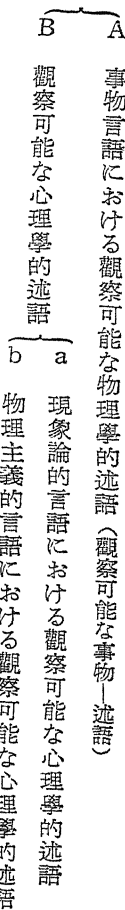 A 事物言語における觀察可能な物理學的述語(觀察可能な事物—述語)
B 觀察可能な心理學的述語
a 現象論的言語における觀察可能な心理學的述語
b 物理主義的言語における觀察可能な心理學的述語